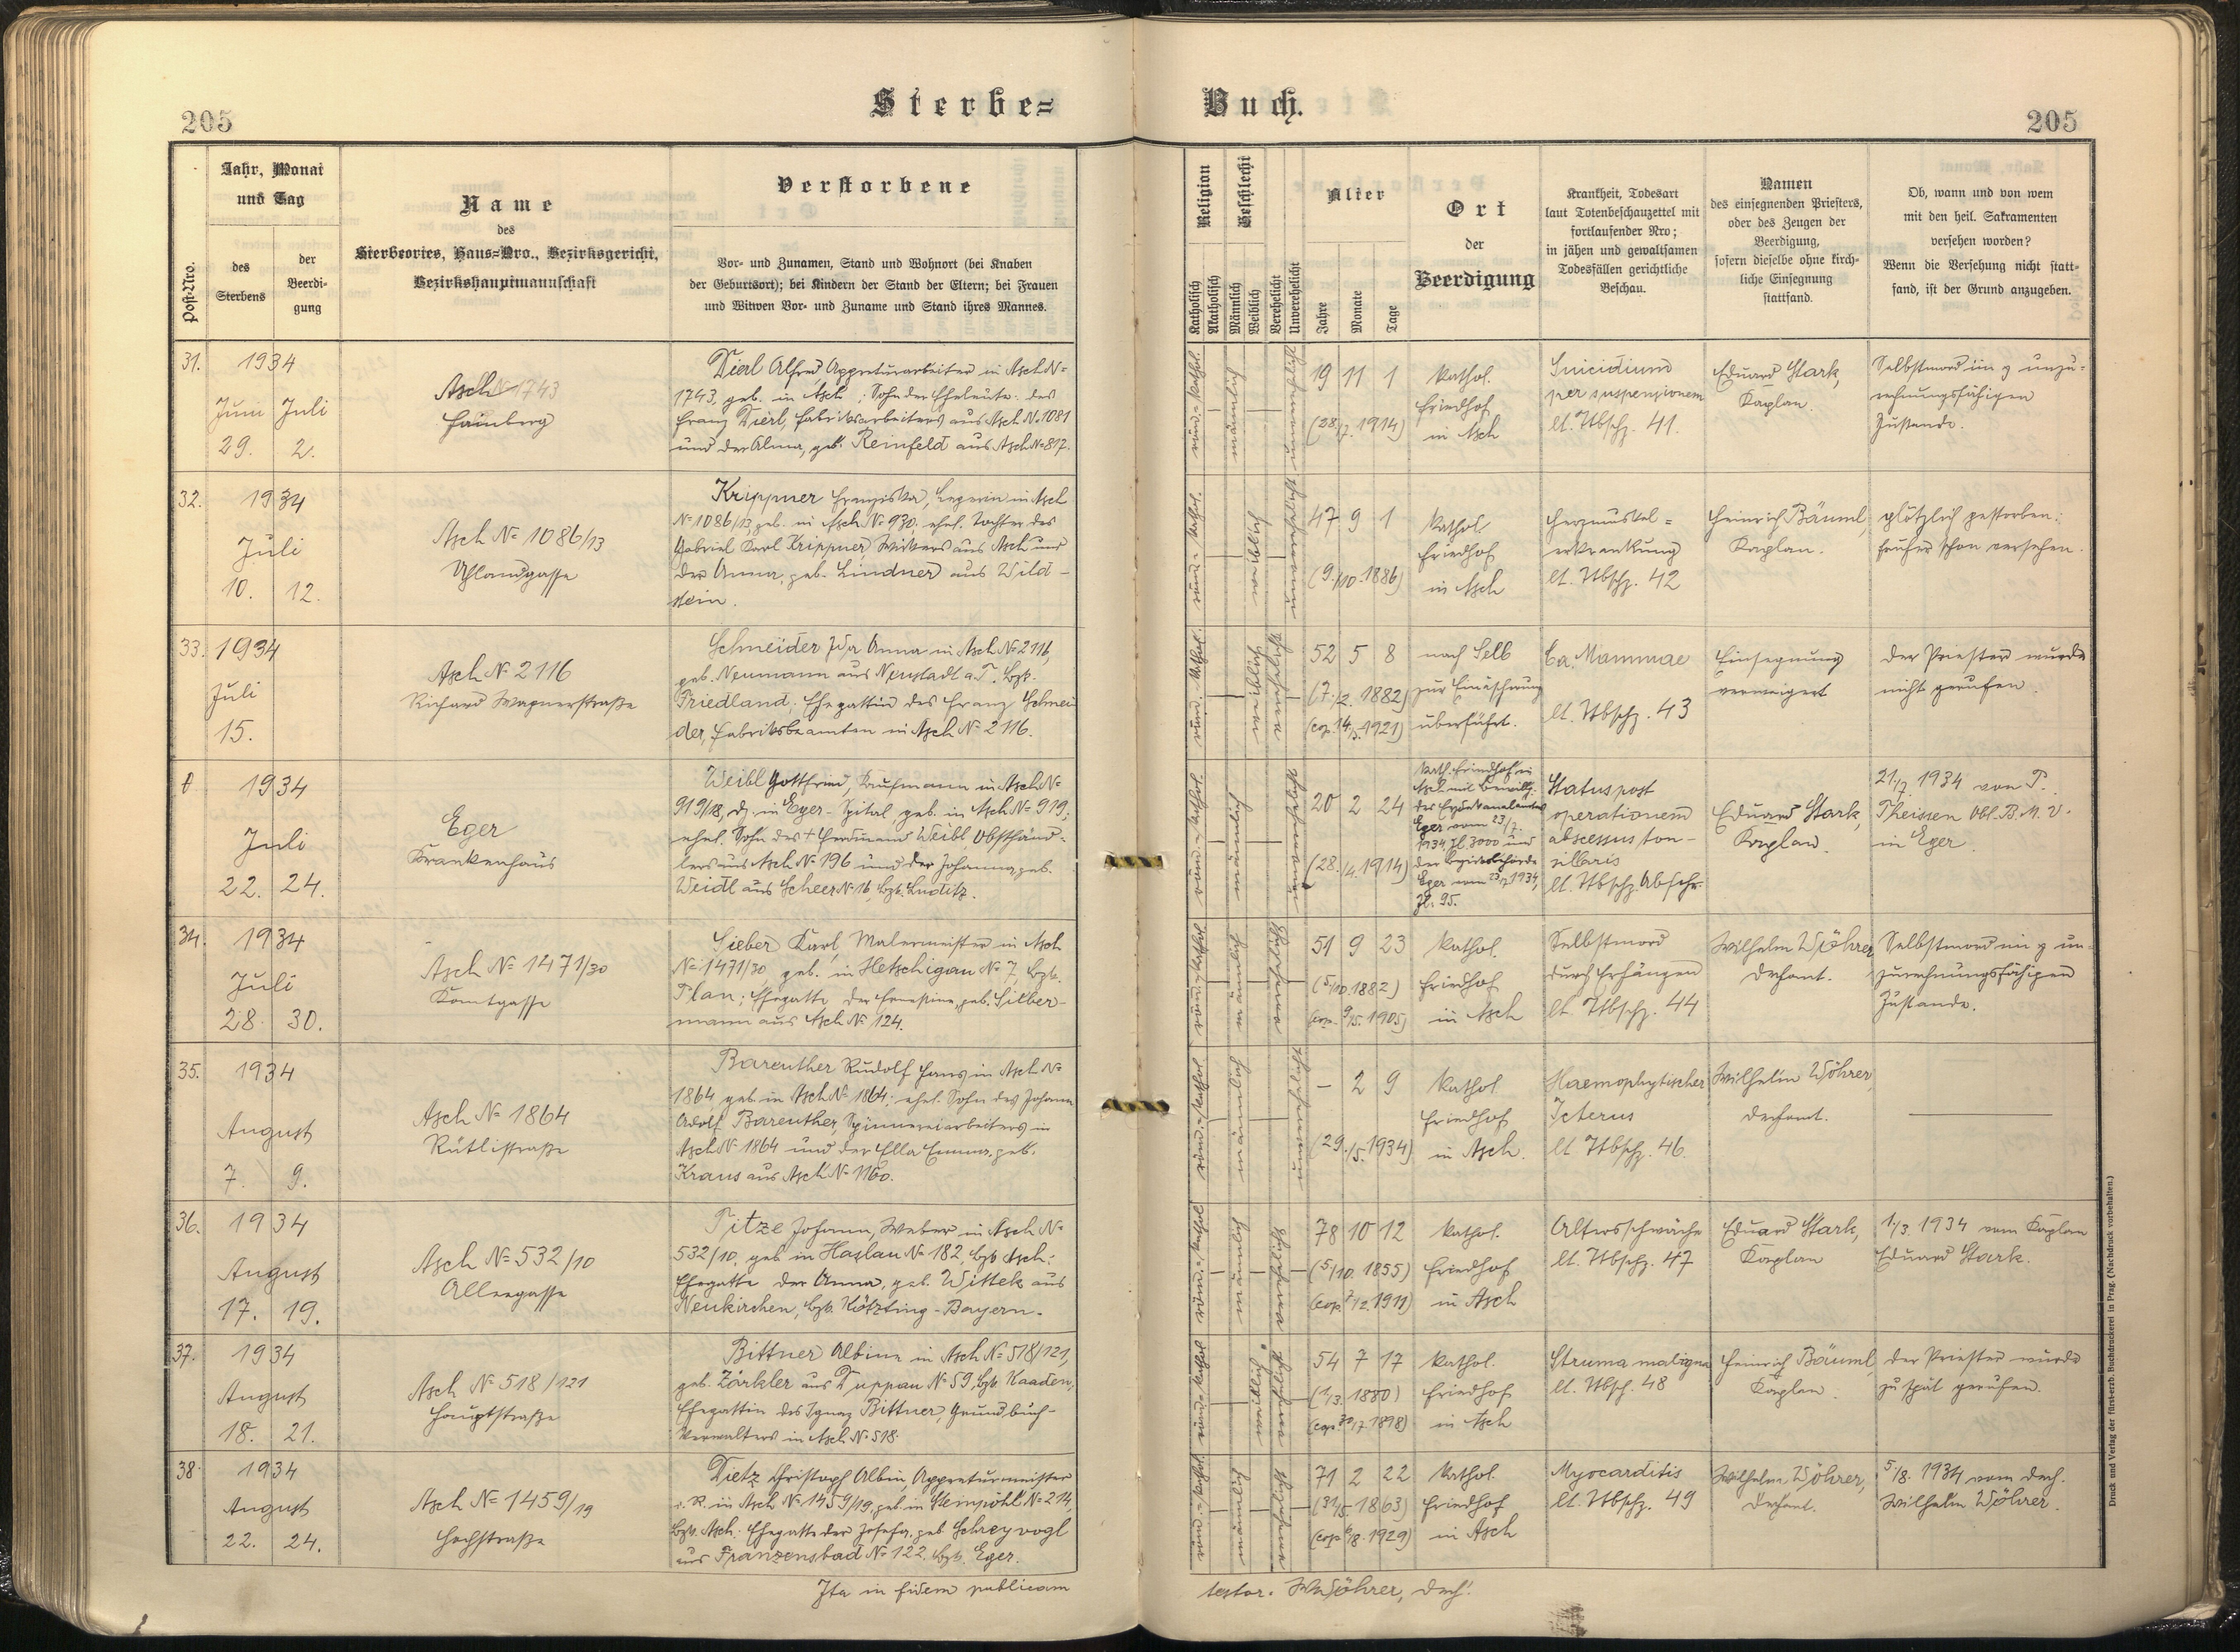 205
Sterbe=
Buch.
205
Post-Nro.
Jahr, Monat
und Tag
des
Sterbens
der
Beerdi-
gung
Name
des
Sterbeortes, Haus=Nro., Bezirksgericht,
Bezirkshauptmannschaft
Verstorbene
Vor- und Zunamen, Stand und Wohnort (bei Knaben
der Geburtsort); bei Kindern der Stand der Eltern; bei Frauen
und Witwen Vor- und Zuname und Stand ihres Mannes.
Religion
Katholisch
Akatholisch
Geschlecht
Männlich
Weiblich
Verehelicht
Unverehelicht
Alter
Jahre
Monate
Tage
Ort
der
Beerdigung
Krankheit, Todesart
laut Totenbeschauzettel mit
fortlaufender Nro;
in jähen und gewaltsamen
Todesfällen gerichtliche
Beschau.
Namen
des einsegnenden Priesters,
oder des Zeugen der
Beerdigung,
sofern dieselbe ohne kirch-
liche Einsegnung
stattfand.
Ob, wann und von wem
mit den heil. Sakramenten
versehen worden?
Wenn die Versehung nicht statt=
fand, ist der Grund anzugeben.
31.
1934
Juni Juli
29. 2.
Asch № 1743
Hainberg
Dierl Alfred Appreturarbeiter in Asch №
1743, geb. in Asch; Sohn der Eheleute: des
Franz Dierl, Fabriksarbeiters aus Asch N. 1081
und der Alma, geb. Reinfeld aus Asch № 817.
röm.-kathol.
männlich
unverehelicht
19 11 1
(28./7. 1914)
Kathol.
Friedhof
in Asch
Suicidium
per suspensionem
lt. Tbschz. 41.
Eduard Stark,
Kaplan.
Selbstmord im z unzu-
rechnungsfähigen
Zustande.
32.
1934
Juli
10. 12.
Asch № 1086/13
Uhlandgasse
Krippner Franziska, Legerin in Asch
№ 1086/13, geb. in Asch № 930; ehel. Tochter des
Gabriel Karl Krippner, Wirkers aus Asch und
der Anna, geb. Lindner aus Wild-
stein.
röm.-kathol.
weiblich
unverehelicht
47 9 1
(9./10. 1886)
Kathol.
Friedhof
in Asch
Herzmuskel=
erkrankung
lt. Tbschz. 42
Heinrich Bäuml,
Kaplan.
plötzlich gestorben;
früher schon versehen.
33.
1934
Juli
15.
Asch № 2116
Richard Wagnerstraße
Schneider Ida Anna in Asch № 2116,
geb. Neumann aus Neustadt a. T. Bzk.
Friedland; Ehegattin des Franz Schnei
der, Fabriksbeamten in Asch № 2116.
röm.-kathol.
weiblich
verehelicht
52 5 8
(7./2. 1882)
(cop. 14/5. 1921)
nach Selb
zur Einäscherung
überführt.
Ca. Mammae
lt. Tbschz. 43
Einsegnung
verweigert
der Priester wurde
nicht gerufen.
1934
Juli
22. 24.
Eger
Krankenhaus
Weibl Gottfried, Kaufmann in Asch №
919/18, dz. in Eger-Spital, geb. in Asch № 919;
ehel. Sohn des † Ferdinand Weibl Obsthänd-
lers aus Asch № 196 und der Johanna, geb.
Weidl aus Scheer № 16, Bzk. Luditz.
röm.-kathol.
männlich
unverehelicht
20 2 24
(28./4. 1914)
Kath. Friedhof in
Asch mit Bewillg.
des Erzdekanalamtes
Eger vom 23/7.
1934 Zl. 3000 und
der Bezirksbehörde
Eger vom 23/7 1934,
Zl. 95.
Status post
operationem
abscessus ton-
sillaris
lt. Tbschz. Abschr.
Eduard Stark,
Kaplan.
21./7. 1934 von P.
Theissen Obl. B. M. V.
in Eger.
34.
1934
Juli
28. 30.
Asch № 1471/30
Kantgasse
Sieber Karl, Malermeister in Asch
№ 1471/30, geb. in Hetschigau № 7, Bzk.
Plan; Ehegatte der Ernestine, geb. Silber-
mann aus Asch № 124.
röm.-kathol.
männlich
verehelicht
51 9 23
(5/10. 1882)
(cop. 9/5. 1905)
Kathol.
Friedhof
in Asch
Selbstmord
durch Erhängen
lt. Tbschz. 44
Wilhelm Wöhrer,
Dechant.
Selbstmord im z un-
zurechnungsfähigen
Zustande.
35.
1934
August
7. 9.
Asch № 1864
Rütlistraße
Bareuther Rudolf Hans in Asch №
1864 geb. in Asch № 1864; ehel. Sohn des Johann
Adolf Bareuther, Spinnereiarbeiters in
Asch № 1864 und der Ella Emma, geb.
Kraus aus Asch № 1160.
röm.-kathol.
männlich
unverehelicht
– 2 9
(29./5. 1934)
Kathol.
Friedhof
in Asch.
Haemophytischer
Icterus
lt Tbschz. 46.
Wilhelm Wöhrer,
Dechant.
36.
1934
August
17. 19.
Asch № 532/10
Alleegasse
Titze Johann, Weber in Asch №
532/10, geb. in Haslau № 182, Bzk Asch;
Ehegatte der Anna, geb. Wittek aus
Neukirchen, Bzk. Kötzting-Bayern.
röm.-kathol.
männlich
verehelicht
78 10 12
(5/10. 1855)
(cop. 7/2. 1911)
Kathol.
Friedhof
in Asch
Altersschwäche
lt. Tbschz. 47
Eduard Stark,
Kaplan
1./3. 1934 vom Kaplan
Eduard Stark.
37.
1934
August
18. 21.
Asch № 518/121
Hauptstraße
Bittner Albine in Asch № 518/121,
geb. Zärkler aus Duppau № 59, Bzk. Kaaden;
Ehegattin des Ignaz Bittner, Grundbuch-
Verwalters in Asch № 518.
röm.-kathol.
weiblich
verehelicht
54 7 17
(1/3. 1880)
Kathol.
Friedhof
in Asch
Struma maligna
lt. Tbsch. 48
Heinrich Bäuml,
Kaplan.
der Priester wurde
zu spät gerufen.
38.
1934
August
22. 24.
Asch № 1459/19
Hochstraße
Dietz Christoph Albin, Appreturmeister
i. R. in Asch № 1459/19, geb. in Steinpöhl № 214,
Bzk. Asch; Ehegatte der Josefa, geb. Schreyvogl
aus Franzensbad № 122, Bzk. Eger.
röm.-kathol.
männlich
verehelicht
71 2 22
(31/5. 1863)
(cop. 6/8. 1929)
Kathol.
Friedhof
in Asch
Myocarditis
lt. Tbschz. 49
Wilhelm Wöhrer,
Dechant.
5/8. 1934 vom Dech.
Wilhelm Wöhrer.
Ita in fidem publicam
testor. W. Wöhrer, Dech.
Druck und Verlag der fürst-erzb. Buchdruckerei in Prag. (Nachdruck vorbehalten.)